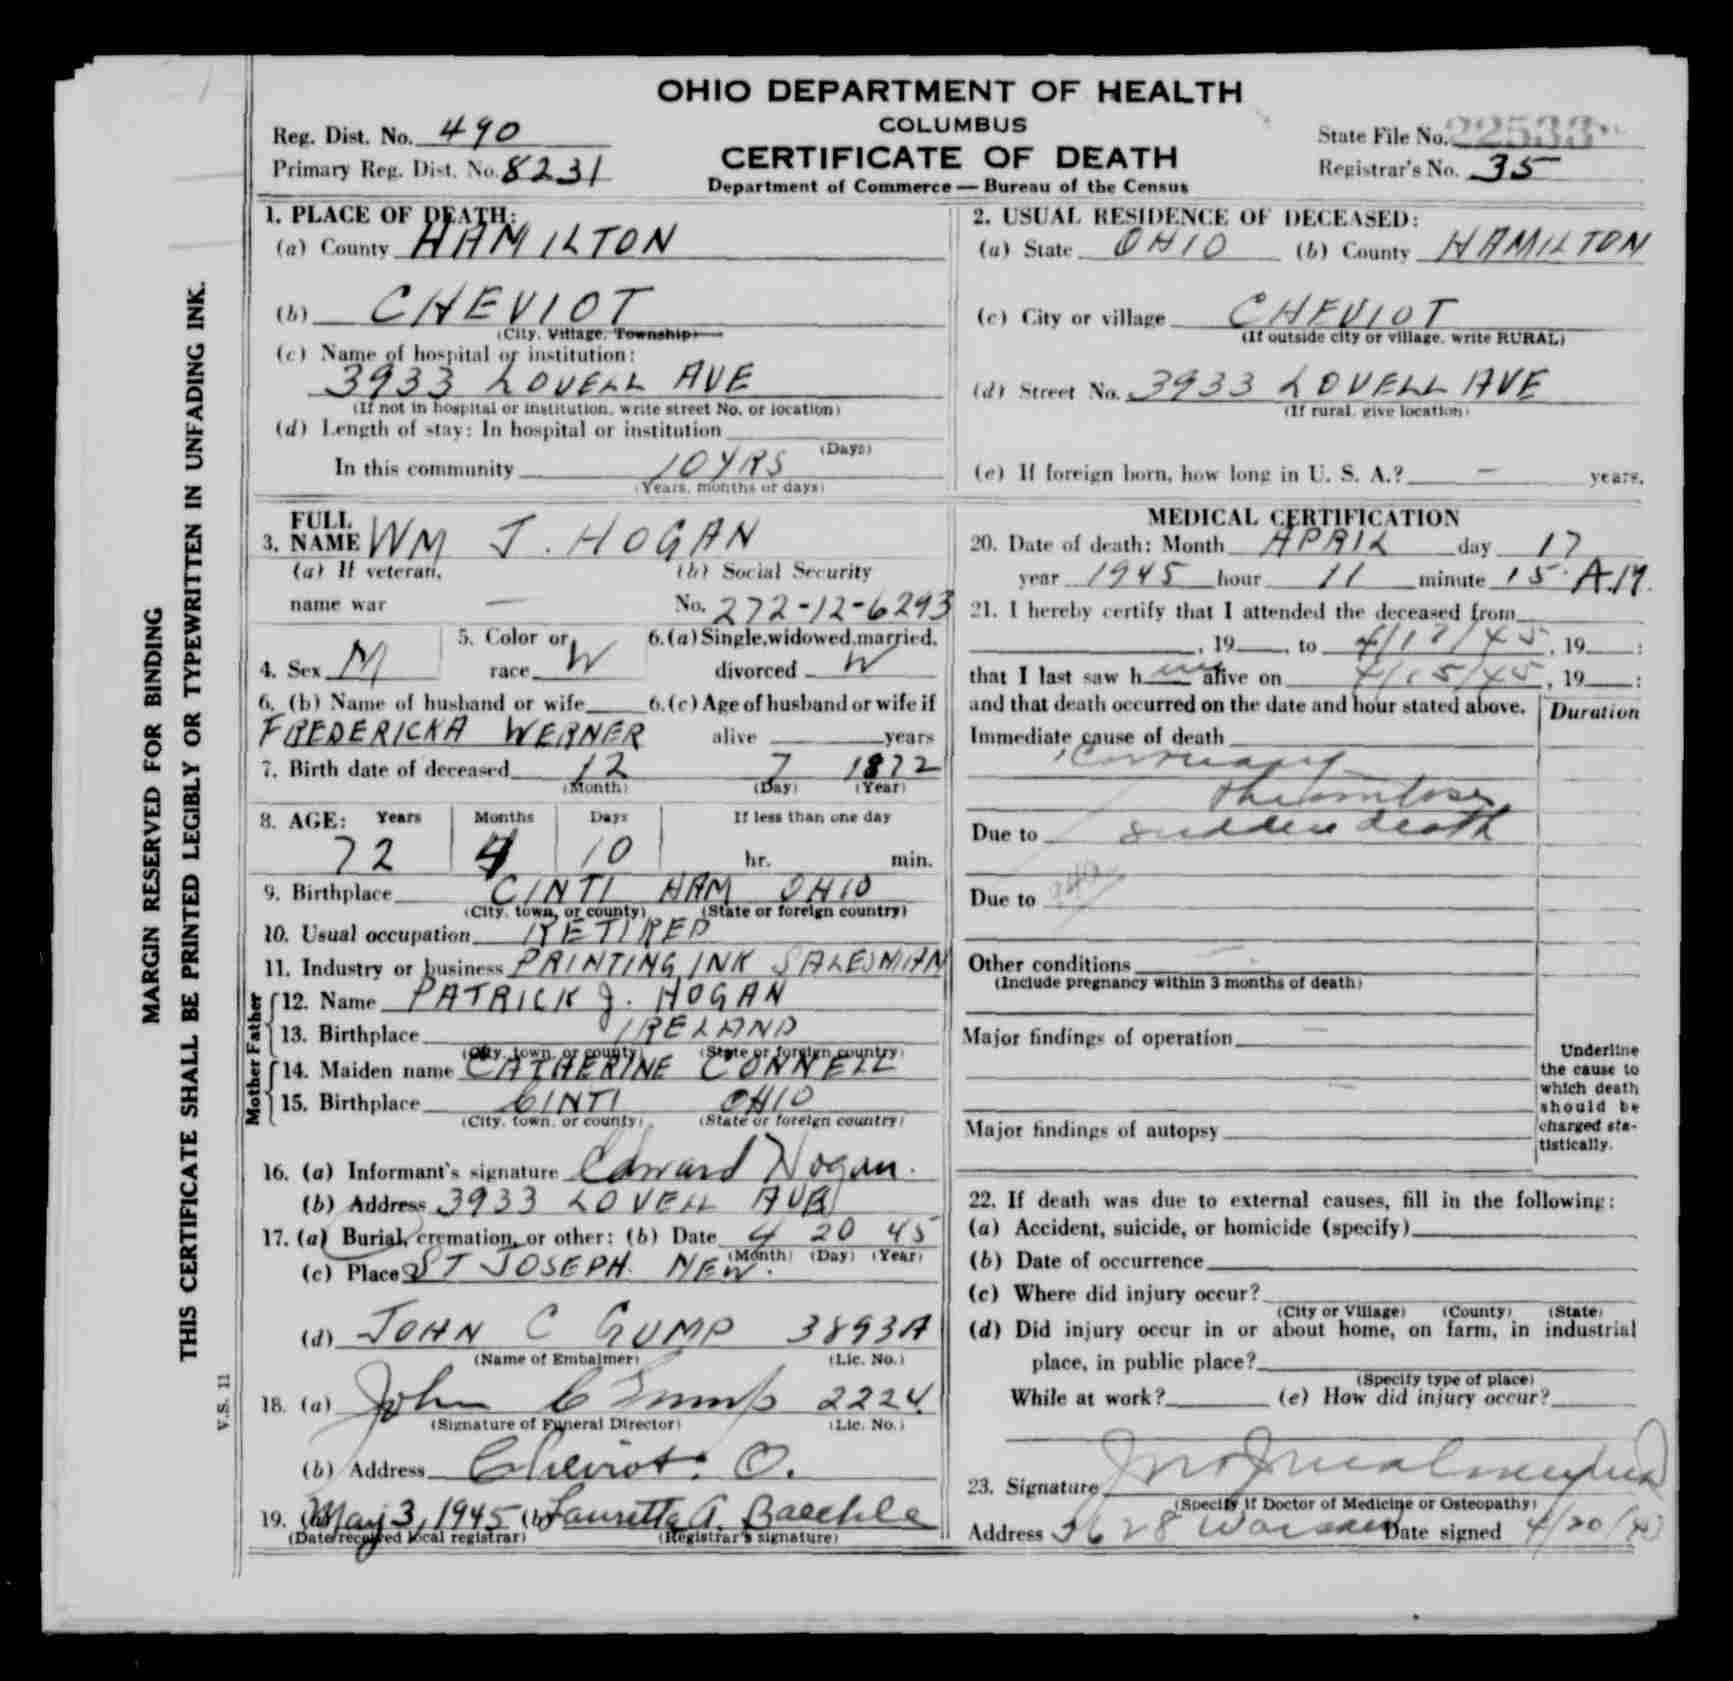 OHIO DEPARTMENT OF HEALTH
COLUMBUS
CERTIFICATE OF DEATH
Department of Commerce — Bureau of the Census
Reg. Dist. No. 490
Primary Reg. Dist. No. 8231
State File No. 22533
Registrar's No. 35
MARGIN RESERVED FOR BINDING
THIS CERTIFICATE SHALL BE PRINTED LEGIBLY OR TYPEWRITTEN IN UNFADING INK.
V.S. 11
1. PLACE OF DEATH:
(a) County HAMILTON
(b) CHEVIOT
(City, Village, Township)
(c) Name of hospital or institution:
3933 LOVELL AVE
(If not in hospital or institution, write street No. or location)
(d) Length of stay: In hospital or institution
(Days)
In this community 10 YRS
(Years, months or days)
2. USUAL RESIDENCE OF DECEASED:
(a) State OHIO (b) County HAMILTON
(c) City or village CHEVIOT
(If outside city or village, write RURAL)
(d) Street No. 3933 LOVELL AVE
(If rural, give location)
(e) If foreign born, how long in U. S. A.? — years.
3. FULL NAME WM J. HOGAN
(a) If veteran, name war —
(b) Social Security No. 272-12-6293
4. Sex M
5. Color or race W
6. (a) Single, widowed, married, divorced W
6. (b) Name of husband or wife
FREDERICKA WERNER
6. (c) Age of husband or wife if alive years
7. Birth date of deceased 12 7 1872
(Month) (Day) (Year)
8. AGE: Years Months Days If less than one day
72 4 10 hr. min.
9. Birthplace CINTI HAM OHIO
(City, town, or county) (State or foreign country)
10. Usual occupation RETIRED
11. Industry or business PRINTING INK SALESMAN
Father
12. Name PATRICK J. HOGAN
13. Birthplace IRELAND
(City, town, or county) (State or foreign country)
Mother
14. Maiden name CATHERINE CONNELL
15. Birthplace CINTI OHIO
(City, town, or county) (State or foreign country)
16. (a) Informant's signature Edward Hogan.
(b) Address 3933 LOVELL AVE
17. (a) Burial, cremation, or other: (b) Date 4 20 45
(Month) (Day) (Year)
(c) Place ST JOSEPH. NEW.
(d) JOHN C GUMP 3893A
(Name of Embalmer) (Lic. No.)
18. (a) John C Gump 2224
(Signature of Funeral Director) (Lic. No.)
(b) Address Cheviot. O.
19. (a) May 3, 1945 (b) Lauretta A. Baechle
(Date received local registrar) (Registrar's signature)
MEDICAL CERTIFICATION
20. Date of death: Month APRIL day 17
year 1945 hour 11 minute 15 A.M.
21. I hereby certify that I attended the deceased from
, 19 , to 4/17/45, 19 ;
that I last saw h im alive on 4/15/45, 19 ;
and that death occurred on the date and hour stated above.
Duration
Immediate cause of death
Coronary
thrombosis
Due to sudden death
Due to
Other conditions —
(Include pregnancy within 3 months of death)
Major findings of operation —
Major findings of autopsy
Underline the cause to which death should be charged statistically.
22. If death was due to external causes, fill in the following:
(a) Accident, suicide, or homicide (specify)
(b) Date of occurrence
(c) Where did injury occur?
(City or Village) (County) (State)
(d) Did injury occur in or about home, on farm, in industrial
place, in public place?
(Specify type of place)
While at work? (e) How did injury occur?
23. Signature
(Specify if Doctor of Medicine or Osteopathy)
Address 3628 Date signed 4/20/45